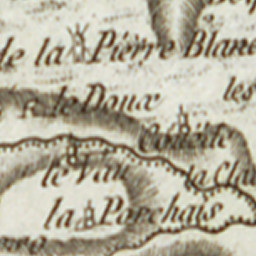 de la Pierre Blanc
les
le Doux
le Vau
la Cla
la Porchais